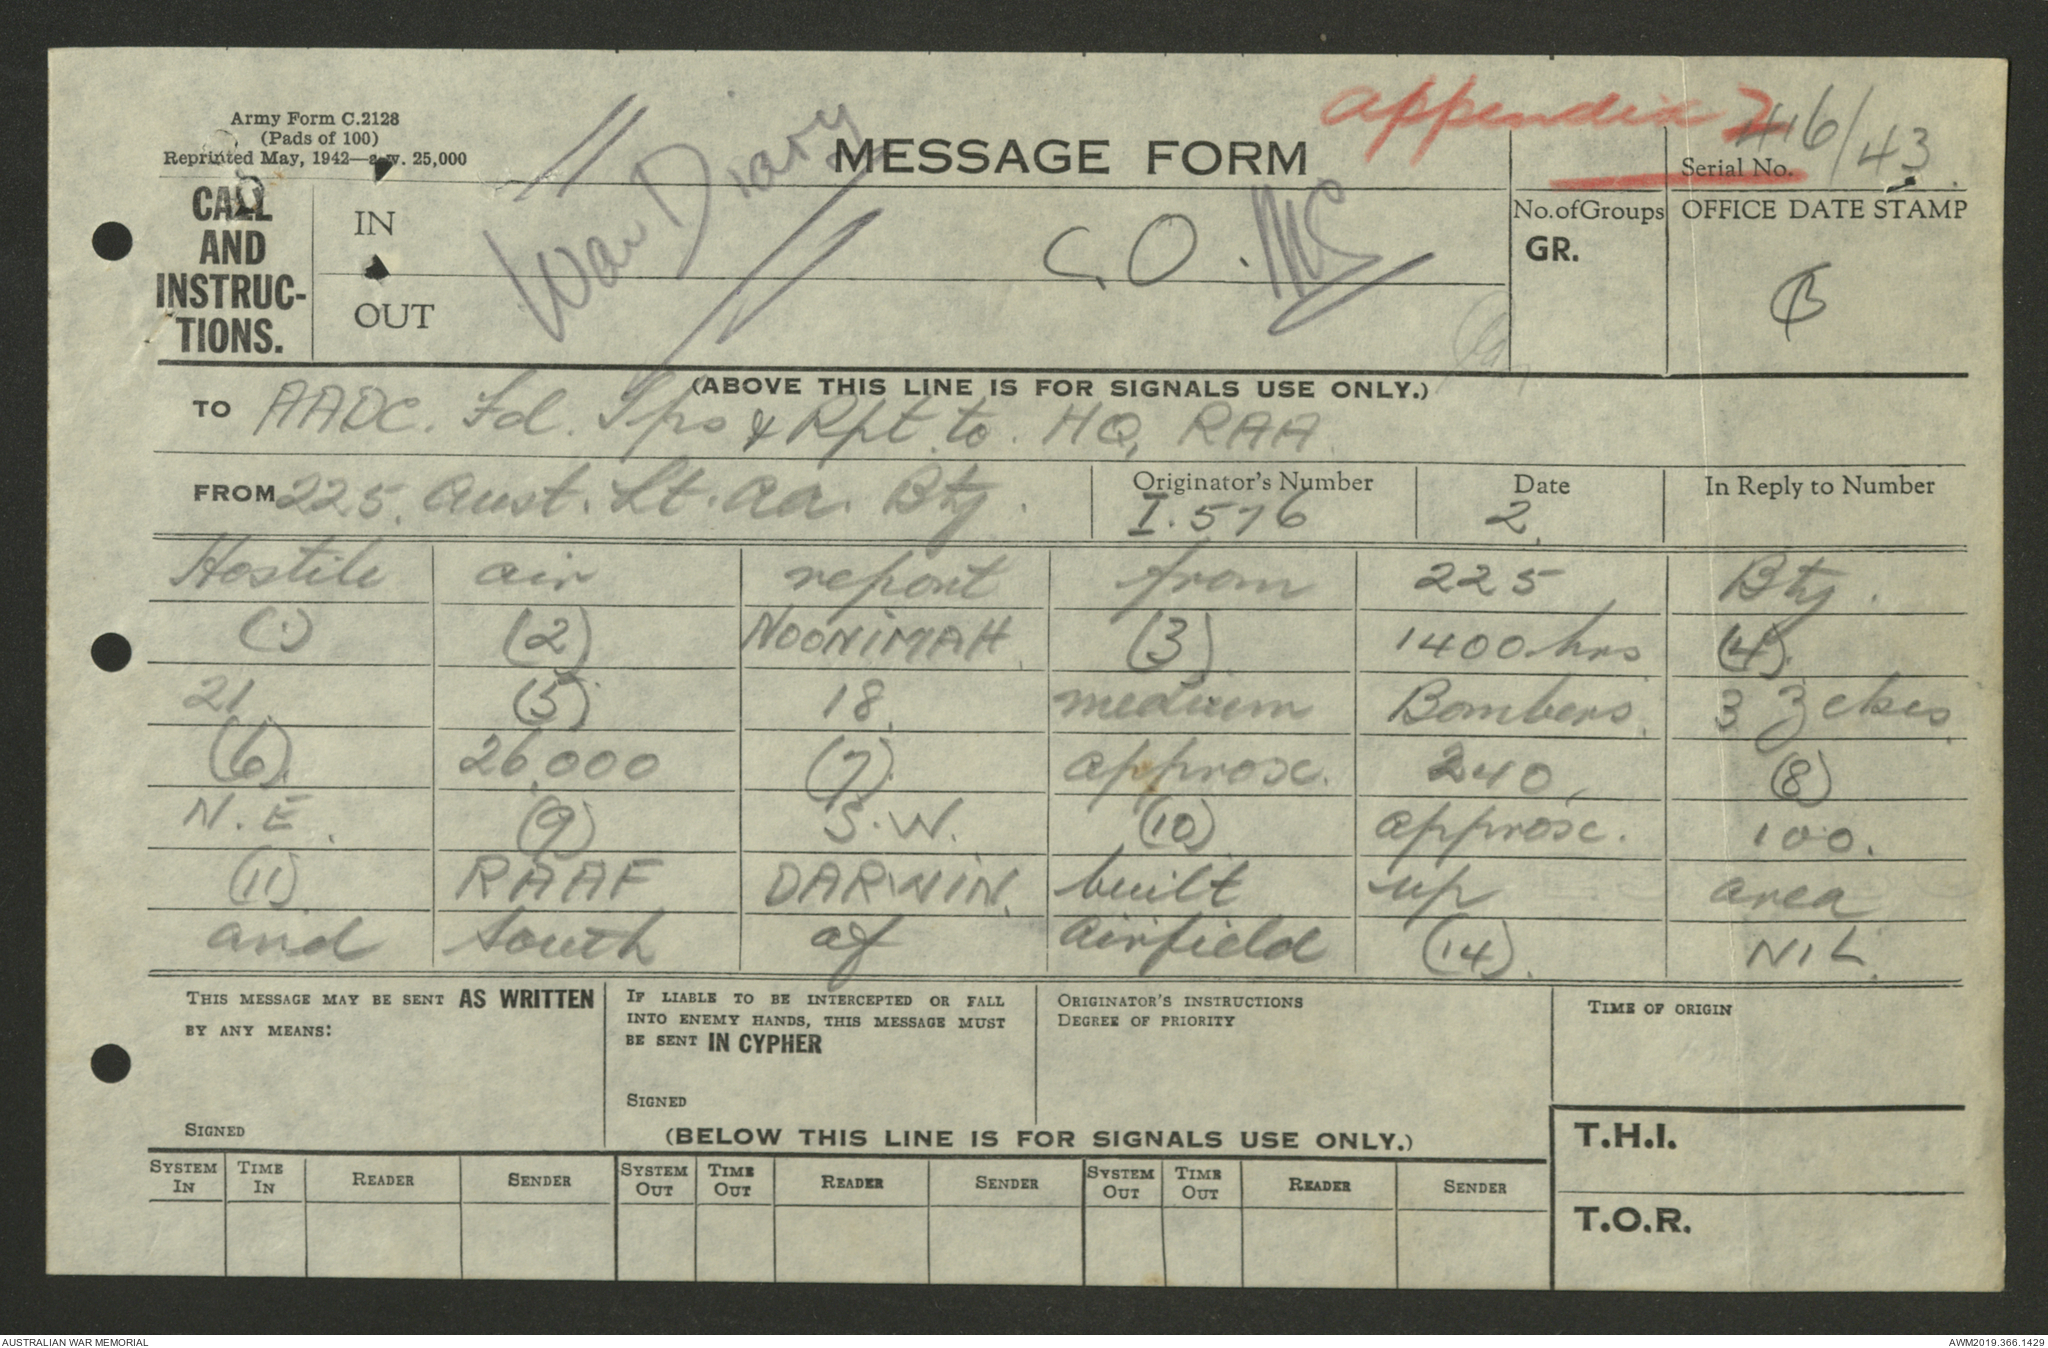 Army Form C.2128
(Pads of 100)
Reprinted May, 1942—a.w. 25,000
MESSAGE FORM
appendix 2
416/43
Serial No.
CALL AND INSTRUC-TIONS.
IN
OUT
War Diary
C.O.
No. of Groups
GR.
OFFICE DATE STAMP
(ABOVE THIS LINE IS FOR SIGNALS USE ONLY.)
TO AADC. Fd. Tps & Rpt. to. HQ, RAA
FROM 225. Aust. Lt. aa. Bty.
Originator's Number I.576
Date 2.
In Reply to Number
Hostile air report from 225 Bty.
(1) (2) NOONIMAH. (3) 1400 hrs (4).
21 (5) 18. medium Bombers. 3 Zekes.
(6). 26,000 (7). approx. 240, (8)
N.E. (9) S.W. (10) approx. 100.
(11) RAAF DARWIN. built up area
and south of airfield (14). NIL.
THIS MESSAGE MAY BE SENT AS WRITTEN
BY ANY MEANS:
SIGNED
IF LIABLE TO BE INTERCEPTED OR FALL
INTO ENEMY HANDS, THIS MESSAGE MUST
BE SENT IN CYPHER
SIGNED
ORIGINATOR'S INSTRUCTIONS
DEGREE OF PRIORITY
TIME OF ORIGIN
(BELOW THIS LINE IS FOR SIGNALS USE ONLY.)
T.H.I.
T.O.R.
SYSTEM IN TIME IN READER SENDER SYSTEM OUT TIME OUT READER SENDER SYSTEM OUT TIME OUT READER SENDER
AUSTRALIAN WAR MEMORIAL AWM2019.366.1429